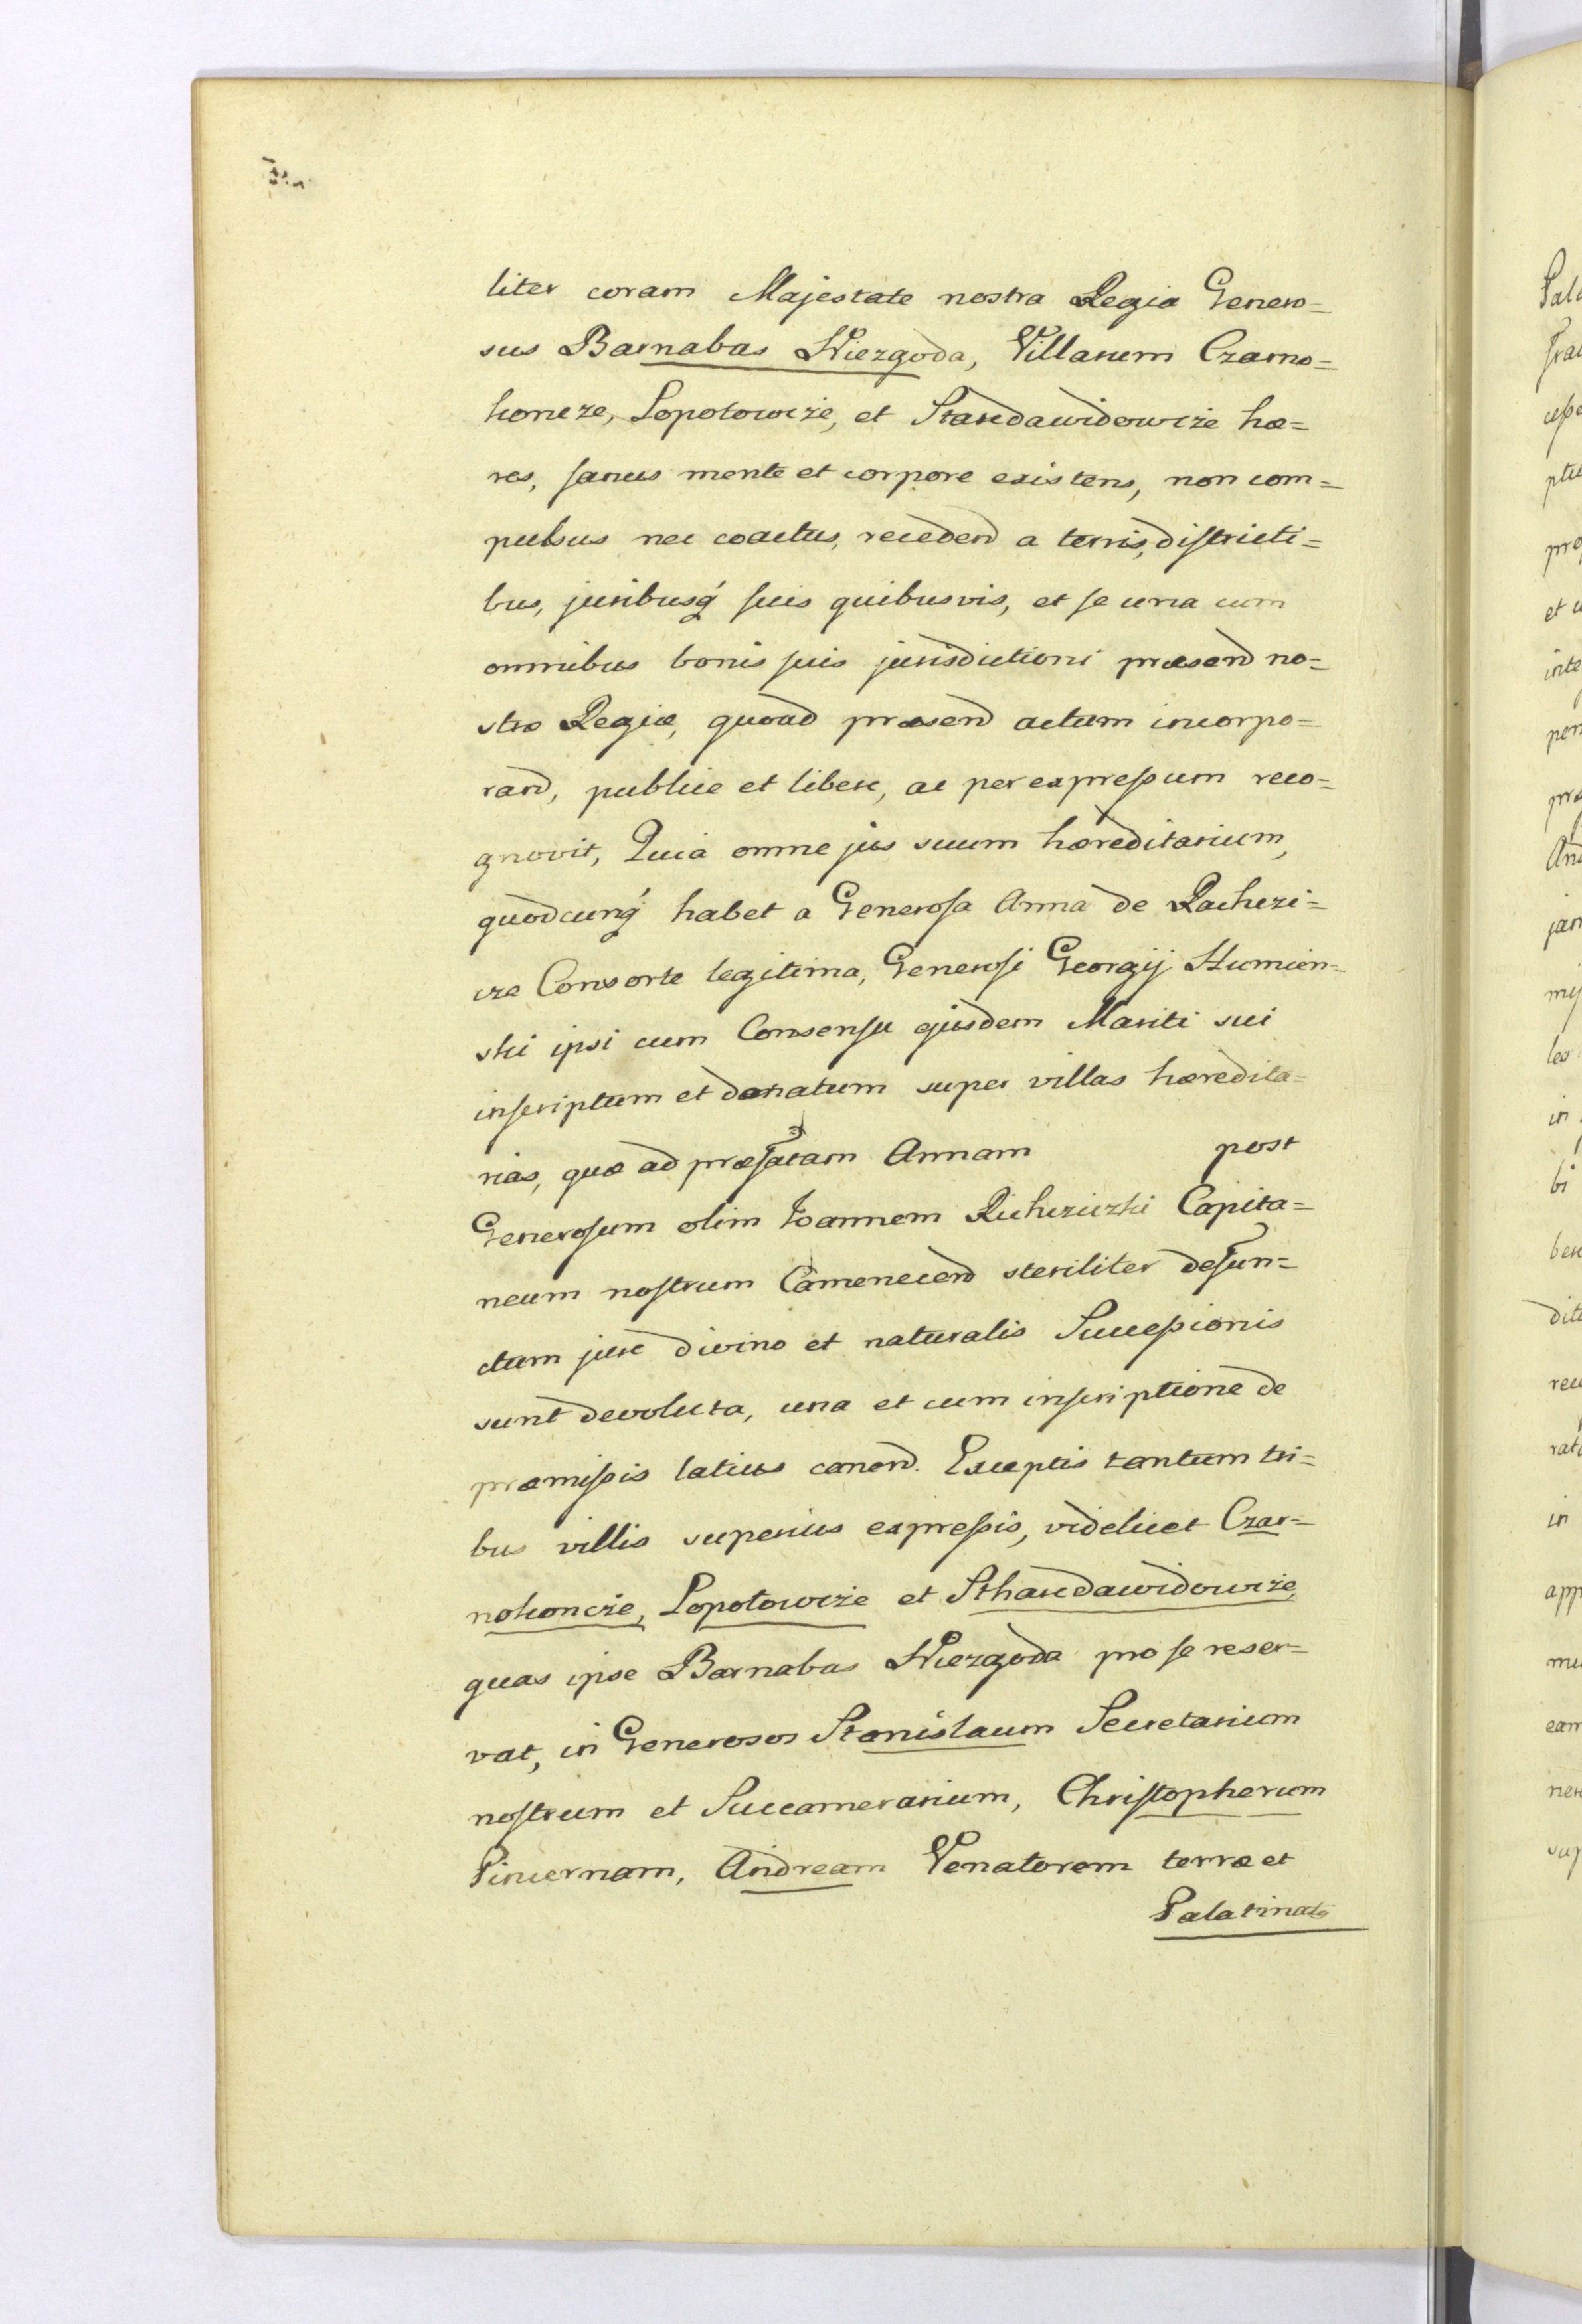 liter coram Majestate nostra Regia Genero=
sus Barnabas Niezgoda, Villarum Czarno=
koncze, Popotowcze, et Staredawidowcze hæ=
res, sanus mente et corpore existens, non com=
pulsus nec coactus, recedend a terris, districti=
bus, juribusq́ suis quibusvis, et se una cum
omnibus bonis suis jurisdictioni præsend no=
stræ Regiæ, quoad præsend actum incorpo=
rand, publice et libere, ac per expressum reco=
gnovit, Quia omne jus suum hæreditarium,
quodcunq́ habet a Generosa Anna de Rachczi=
cze Consorte legitima, Generosi Georgij Strumien=
ski ipsi cum Consensu ejusdem Mariti sui
inscriptum et donatum super villas hæredita=
rias, quæ ad præfatam Annam post
Generosum olim Joannem Richcziczki Capita=
neum nostrum Camenecend steriliter defun=
ctum jure divino et naturalis Successionis
sunt devoluta, una et cum inscriptione de
præmissis latius canend. Exceptis tantum tri=
bus villis superius expressis, videlicet Czar=
nokoncze, Popotowcze et Stharedawidowcze,
quas ipse Barnabas Niezgoda pro se reser=
vat, in Generosos Stanislaum Secretarium
nostrum et Succamerarium, Christopherum
Pincernam, Andream Venatorem terræ et
Palatinats